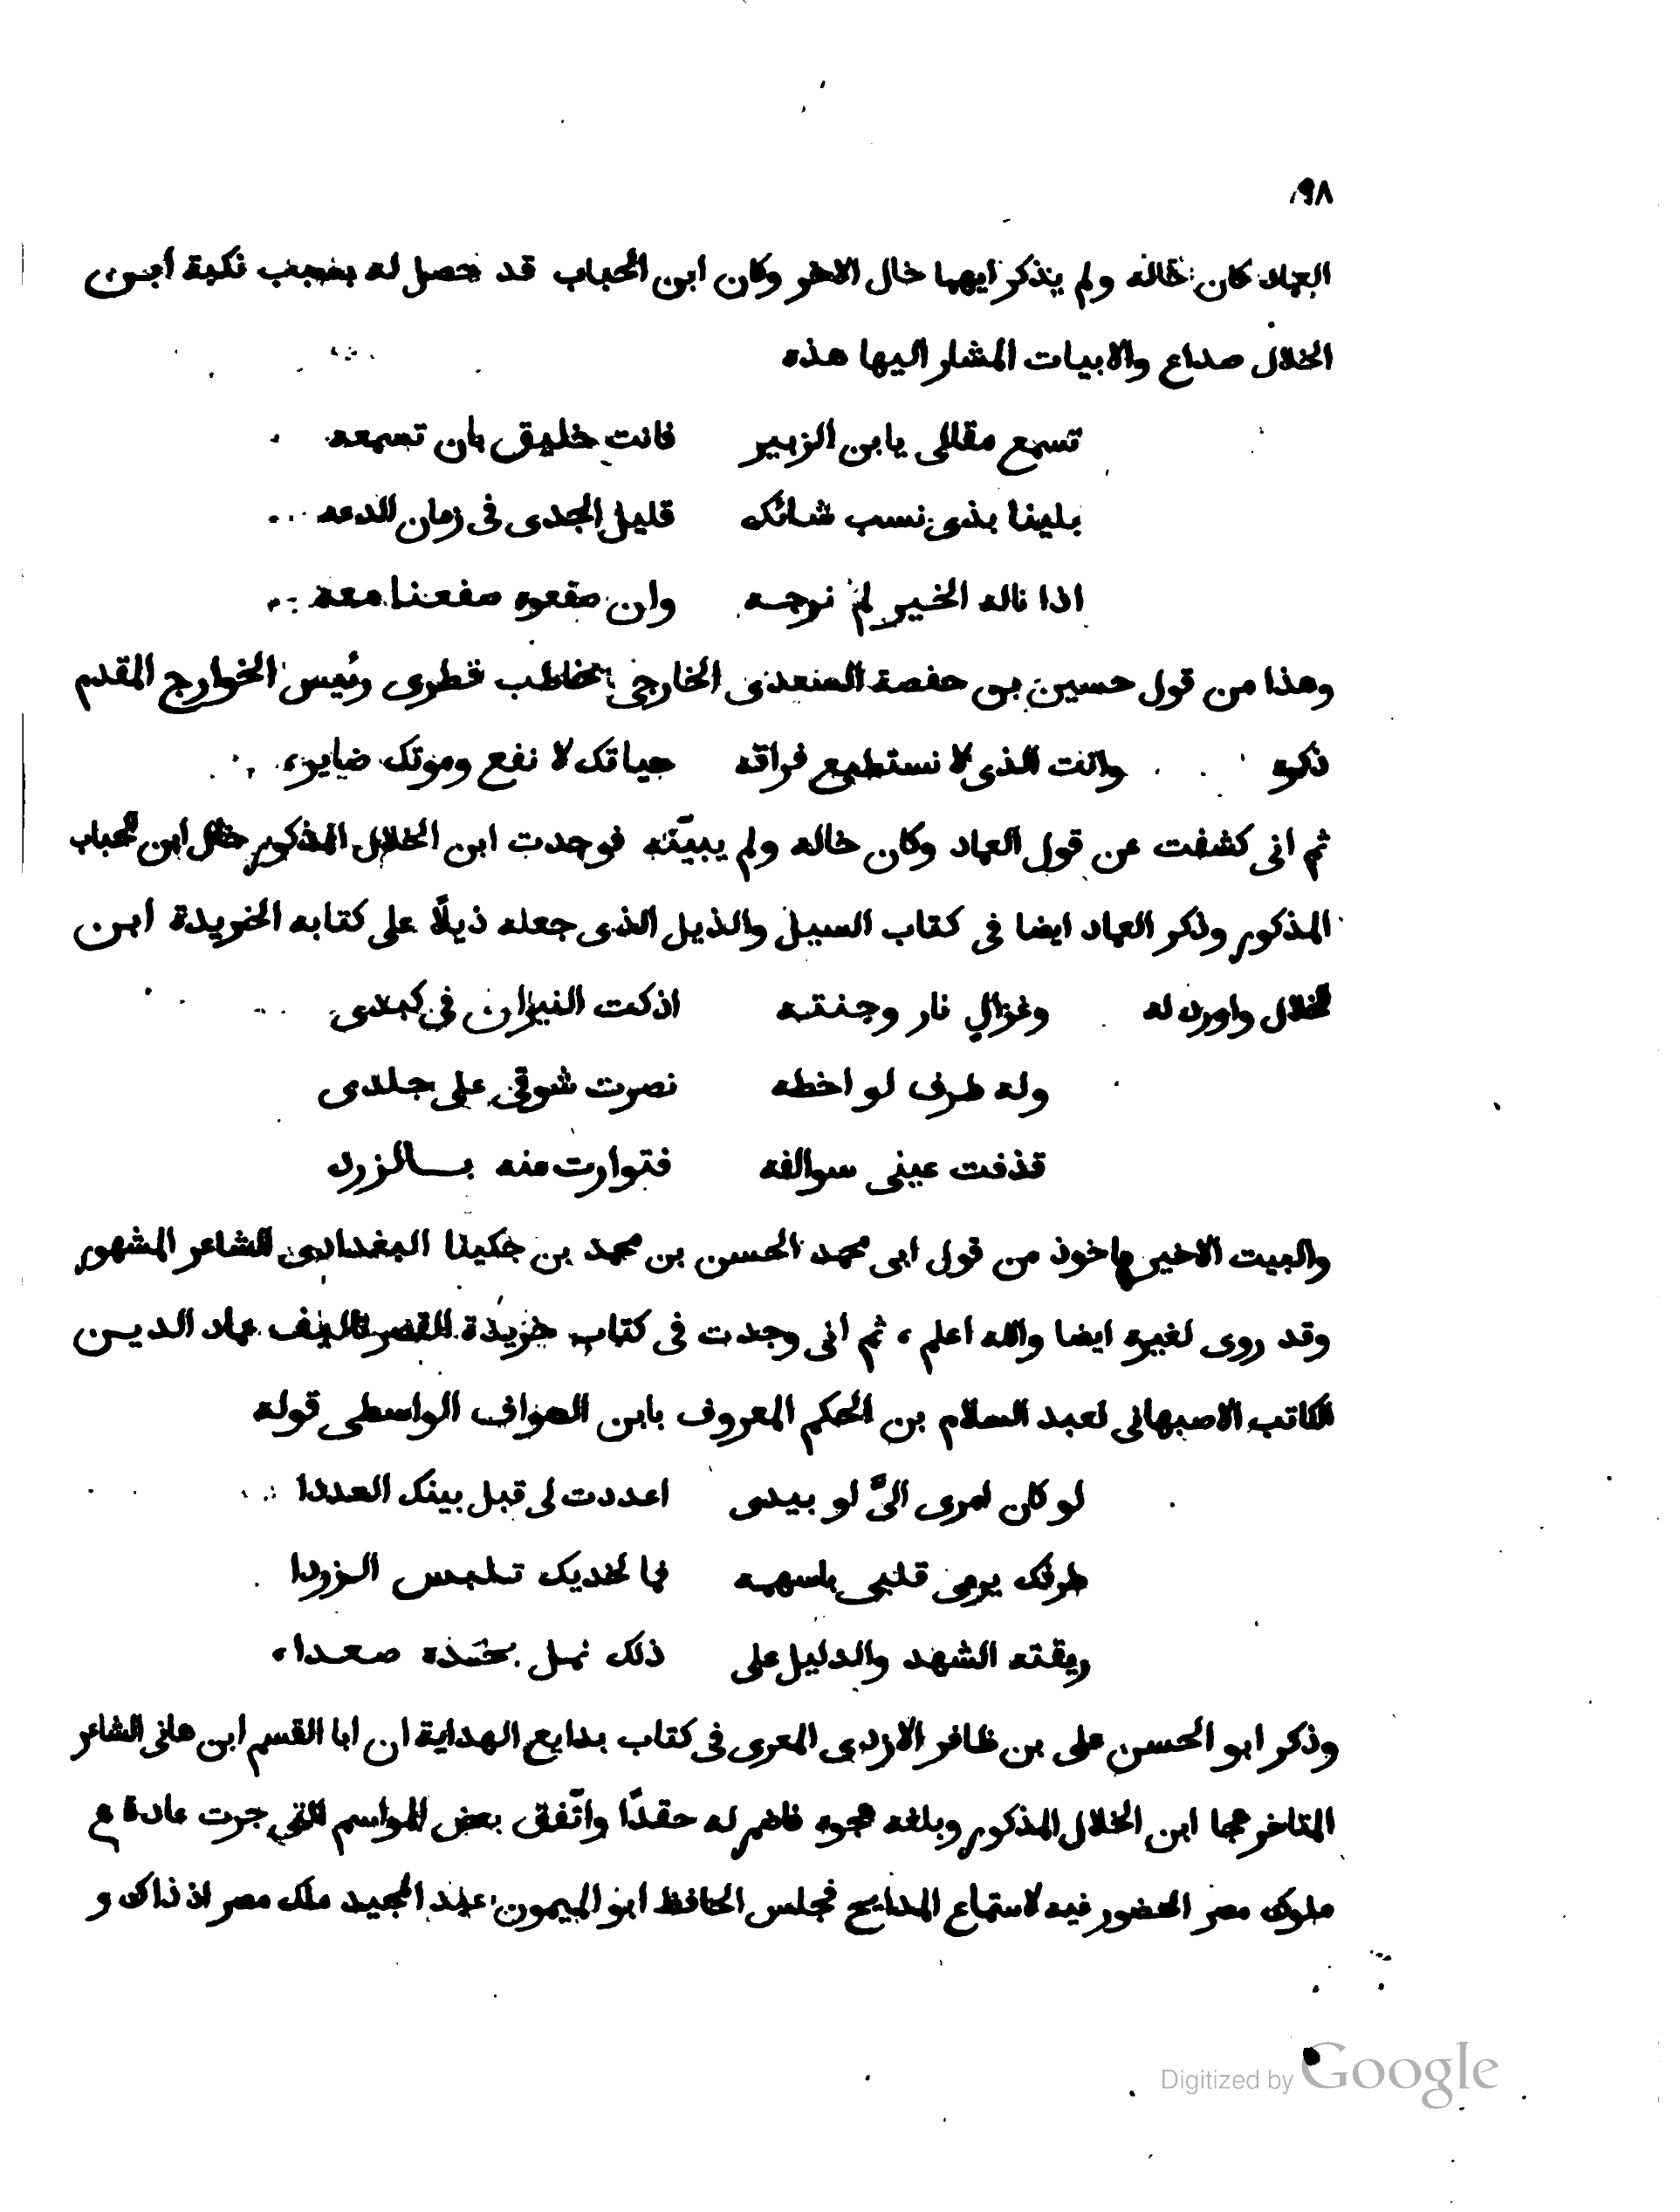 ٩٨
العماد كان خاله ولم يذكر ايهما خال الاخر وكان ابن الحباب قد حصل له بسبب نكبة ابن
الخلال صداع والابيات المشار اليها هذه
تسمع مقالى يابن الزبير فانت خليق بان تسمعه
بلينا بذى نسب شائك قليل الجدى فى زمان الدعه
اذا ناله الخير لم نرجه وان صفعوه صفعنا معه
وهذا من قول حسين بن حفصة السعدى الخارجى يخاطب قطرى رئيس الخوارج المقدم
ذكره وانت الذى لا نستطيع فراقه حياتك لا نفع وموتك ضاير،
ثم انى كشفت عن قول العماد وكان خاله ولم يبيّنه فوجدت ابن الخلال المذكور خال ابن الحباب
المذكور وذكر العماد ايضا فى كتاب السيل والذيل الذى جعله ذيلًا على كتابه الخريدة ابن
الخلال واورد له وغزالٍ نار وجنته اذكت النيران فى كبدى
وله طرف لواخظه نصرت شوقى على جلدى
قذفت عينى سوالفه فتوارت منه بالزرد
والبيت الاخير ماخوذ من قول ابى محمد الحسن بن محمد بن جكينا البغدادى الشاعر المشهور
وقد روى لغيره ايضا والله اعلم، ثم انى وجدت فى كتاب خريدة القصر تاليف عماد الدين
الكاتب الاصبهانى لعبد السلام بن الحكم المعروف بابن الصواف الواسطى قوله
لو كان امرى الىّ لو بيدى اعددت لى قبل بينك العددا
طرفك يرمى قلبى باسهمه فما لخديك تلبس الزردا
ريقته الشهد والدليل على ذلك نمل بخدّه صعدا،
وذكر ابو الحسن على بن ظافر الازدى المعرى فى كتاب بدايع الهداية ان ابا القسم ابن هانى الشاعر
المتاخر هجا ابن الخلال المذكور وبلغه هجوه فاضمر له حقدًا واتّفق بعض المواسم التى جرت عادة ع
ملوك مصر الحضور فيه لاستماع المدايح فجلس الحافظ ابو الميمون عبد المجيد ملك مصر اذ ذاك و
Digitized by Google